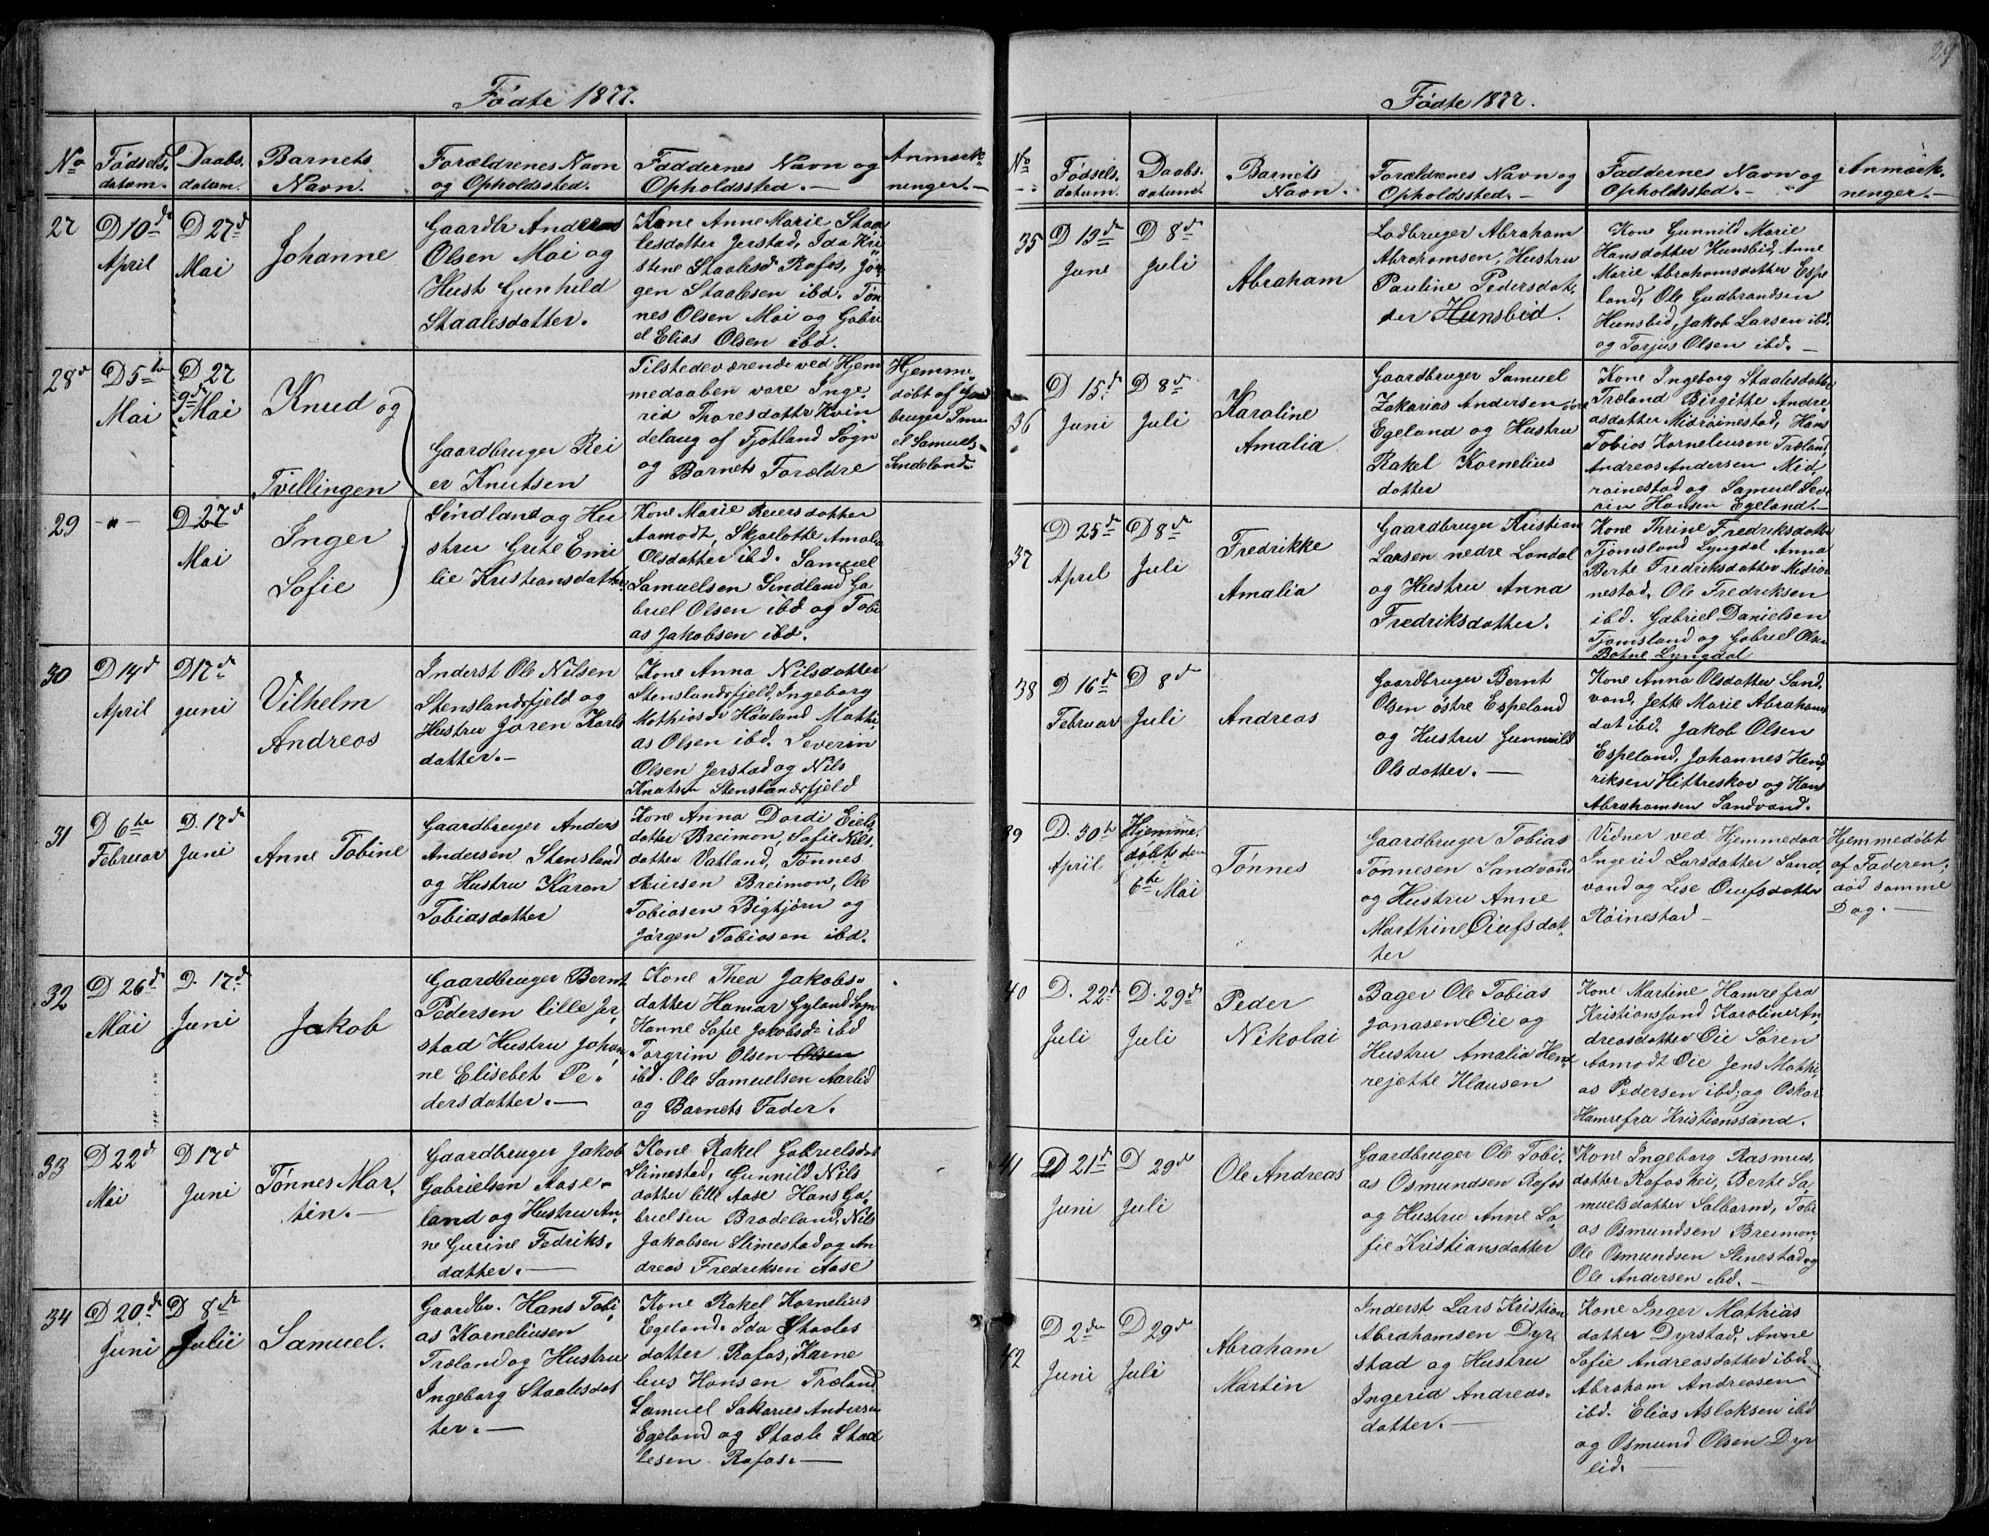 29
Fødte 1877.
No
Fødsels
datum.
Daabs
datum.
Barnets
Navn.
Forældrenes Navn
og Opholdssted.
Faddernes Navn og
Opholdssted. —
Anmærk-
ninger. —
27
D 10de
April
D 27de
Mai
Johanne
Gaardbr Anders
Olsen Moi og
Hust Gunhild
Staalesdatter.
Kone Anne Marie Staa
lesdatter Jerstad, Ida Kri
stene Staalesd Rafos, Jør
gen Staalesen ibd. Tøn
nes Olsen Moi og Gabri
el Elias Olsen ibd.
28
D 5te
Mai
D 27
Mai
Knud og
Tvillingen
Gaardbruger Rei
er Knutsen
Tilstedeværende ved Hjem
medaaben vare Inge
rid Thoresdatter Kvin
delaug af Fjotland Sogn
og Barnets Forældre
Hjemme
døbt af Gaar
bruger Samu
el Samuels.
Sindeland
29
- " -
D 27d
Mai
Inger
Sofie
Sindland og Hu
stru Grete Emi
lie Kristiansdatter
Kone Marie Reiersdatter
Aamodt, Skarlotte Amalia
Olsdatter ibd. Samuel
Samuelsen Sindland Ga
briel Olsen ibd og Tobi
as Jakobsen ibd.
30
D 14d
April
D 17de
juni
Vilhelm
Andreas
Inderst Ole Nilsen
Stenslandsfjeld og
Hustru Joren Karls
datter. —
Kone Anna Nilsdatter
Stenslandsfjeld, Ingeborg
Mathiasd Houland Mathi
as Olsen ibd. Severin
Olsen Jerstad og Nils
Knutsen Stenslandsfjeld
31
D 6te
Februar
D. 17de
Juni
Anne Tobine
Gaardbruger Anders
Andersen Stensland
og Hustru Karen
Tobiasdatter
Kone Anna Dordi Eiels
datter Breimon, Sofie Nils
datter Vatland, Tønnes
Reiersen Breimon, Ole
Tobiasen Bigtjørn og
Jørgen Tobiasen ibd.
32
D 26de
Mai
D. 17de
Juni
Jakob
Gaardbruger Bernt
Pedersen lille Jer,
stad Hustru Johan,
ne Elisebet Pe,
dersdatter. —
Kone Thea Jakobs-
datter Hamar Gyland Sogn
Hanne Sofie Jakobsd: ibd
Torgrim Olsen Olsen
ibd. Ole Samuelsen Aarlid
og Barnets Fader.
33
D 22de
Mai
D 17de
Juni
Tønnes Mar,
tin. —
Gaardbruger Jakob
Gabrielsen Aase-
land og Hustru An,
ne Gurine Fedriks.
datter. —
Kone Rakel Gabrielsdat
Slimestad, Gunnild Nils
datter lille Aase Hans Ga,
brielsen Brodeland, Nils
Jakobsen Slimestad og An
dreas Fredriksen Aase
34
D 20de
Juni
D 8de
Julii
Samuel.
Gaardbr. Hans Tobi,
as Korneliusen
Træland og Hustru
Ingeborg Staalesdat
ter. —
Kone Rakel Kornelius
Egeland. Ida Staales
datter Rafos, Korne
lius Hansen Træland
Samuel Sakarias Andersen
Egeland og Staale Staa
lesen Rafos. —
Fødte 1877.
No
Fødsels.
datum.
Daabs.
datum.
Barnets
Navn.
Forældrenes Navn og
Opholdssted. —
Faddernes Navn og
Opholdssted. —
Anmærk.
ninger. —
35
D 13de
June
D 8de
Juli
Abraham
Ladbruger Abraham
Abrahamsen, Hustru
Pauline Pedersdat,
der Hunsbed.
Kone Gunnild Marie
Hansdatter Hunsbed, Anne
Marie Abrahamsdatter Espe
land, Ole Gudbrandsen
Hunsbed, Jakob Larsen ibd.
og Torjus Olsen ibd. —
36
D 15de
Juni
D 8de
Juli
Karoline
Amalia
Gaardbruger Samuel
Zakarias Andersen
Egeland og Hustru
Rakel Kornelius
datter
Kone Ingeborg Staalesdatter
Træland Birgithe Andre,
asdatter Midroinestad, Hans
Tobias Korneliusen Træland
Andreas Andersen Mid,
roinestad og Samuel Seve
rin Hansen Egeland. —
37
D 25de
April
D 8de
Juli
Fredrikke
Amalia
Gaardbruger Kristian
Larsen nedre Londal
og Hustru Anna
Fredriksdatter.
Kone Thrine Fredriksdatter
Tjomsland Lyngdal Anna
Berte Fredriksdatter Midroi
nestad, Ole Fredriksen
ibd. Gabriel Danielsen
Tjomsland og Gabriel Olsen
Lyngdal
38
D 16de
Februar
D 8de
Juli
Andreas
Gaardbruger Bernt
Olsen østre Espeland
og Hustru Gunnild
Olsdatter. —
Kone Anna Olsdatter Sand,
vand, Jette Marie Abrahams
dat ibid. Jakob Olsen
Espeland, Johannes Hend
riksen Hittreskov og Hans
Abrahamsen Sandvand.
39
D. 30te
April
Hjemme,
døbt den
6te Mai
Tønnes
Gaardbruger Tobias
Tønnesen Sandvand
og Hustru Anne
Marthine Oiufsdat,
ter
Vidner ved Hjemmedaa
Ingerid Larsdatter Sand,
vand og Lise Oiufsdatter
Røinestad —
Hjemmedøbt
af Faderen,
død samme
Dag. —
40
D. 22de
Juli
D. 29de
Juli
Peder
Nikolai
Bager Ole Tobias
Jonasen Oie og
Hustru Amalia Hen,
rejette Klausen
Kone Martine Hamre fra
Kristiansand Karoline An,
dreasdatter Oie Søren
Aamodt Oie Jens Mathi,
as Pedersen ibd, og Oskar
Hamre fra Kristianssand.
41
D 21de
Juni
D 29de
Juli
Ole Andreas
Gaardbruger Ole Tobi,
as Osmundsen Rafos
og Hustru Anne So
fie Kristiansdatter
Kone Ingeborg Rasmus,
datter Rafoshei, Berte Sa
muelsdatter Salbarnd, Tobi
as Osmundsen Breimon,
Ole Osmundsen Stinestad og
Ole Andersen ibd. —
42
D 2den
Juni
D 29de
Juli
Abraham
Martin
Inderst Lars Kristian
Abrahamsen Dyr
stad og Hustru
Ingerid Andreas.
datter. —
Kone Inger Mathias
datter Dyrstad, Anne
Sofie Andreasdatter ibd.
Abraham Andreasen
ibd. Elias Aslaksen ibd
og Osmund Olsen Dyr
lid. —